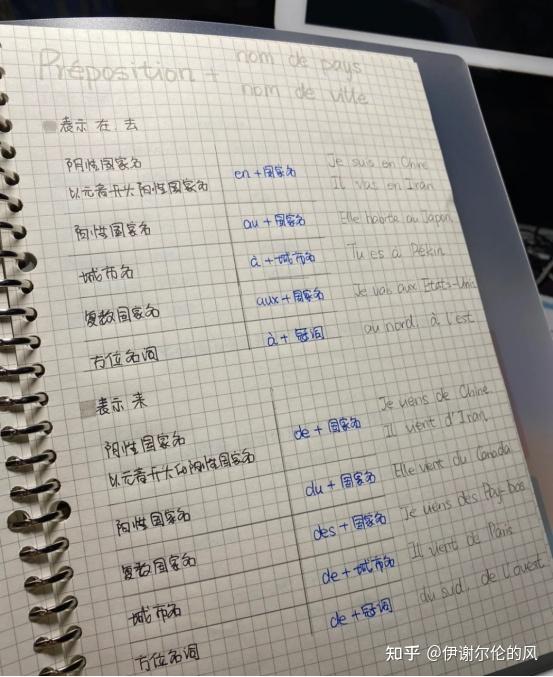 Préposition + nom de pays
nom de ville
表示 在、去
阴性国家名
以元音开头阳性国家名
en + 国家名
Je suis en Chine
Il vas en Iran
阳性国家名
au + 国家名
Elle habite au Japon
城市名
à + 城市名
Tu es à Pékin
复数国家名
aux + 国家名
Je vais aux États-Unis
方位名词
à + 冠词
au nord, à l'est
表示 来
阴性国家名
以元音开头的阳性国家名
de + 国家名
Je viens de Chine
Il vient d'Iran
阳性国家名
du + 国家名
Elle vient du Canada
复数国家名
des + 国家名
Je viens des Pay-bas
城市名
de + 城市名
Il vient de Paris
方位名词
de + 冠词
du sud, de l'ouest
知乎 @伊谢尔伦的风